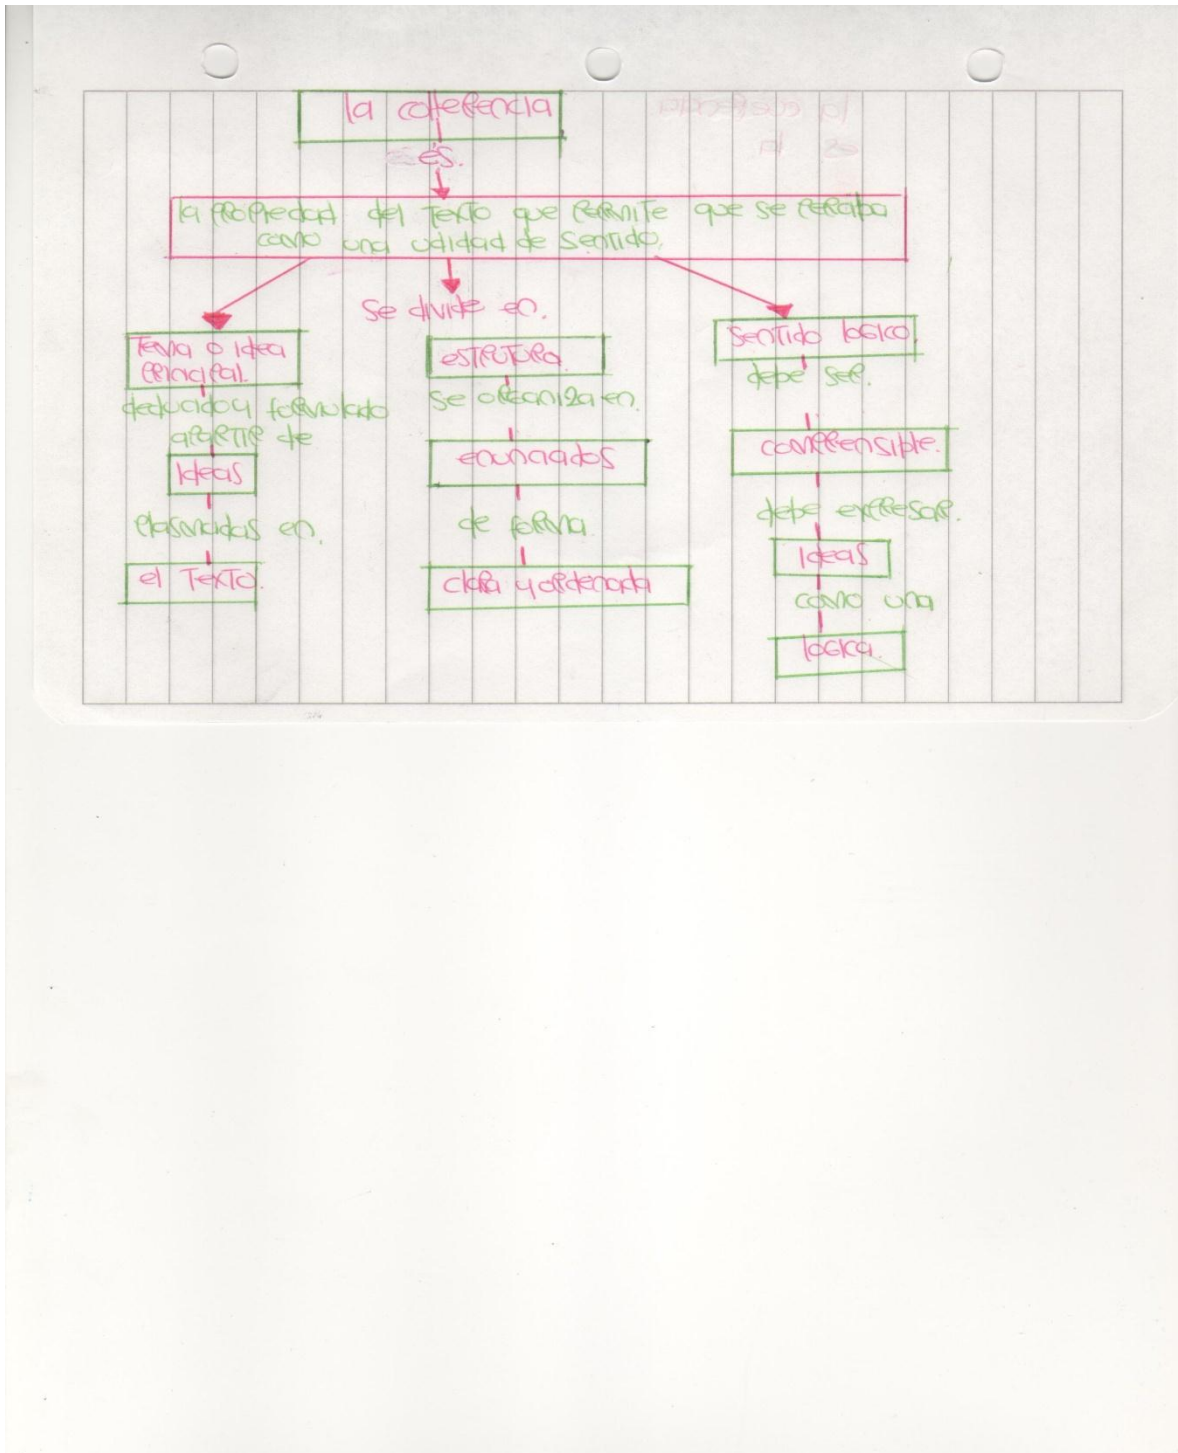 la coherencia
es.
la propiedad del texto que permite que se perciba
como una udidad de sentido.
se divide en.
Tema o idea
principal.
deducido y formulado
apartir de
Ideas
plasmadas en.
el Texto.
esTruTura.
se organiza en.
enunciados
de forma
clara y ordenada
sentido logico.
debe ser.
comprensible.
debe expresar.
Ideas
como una
logica.